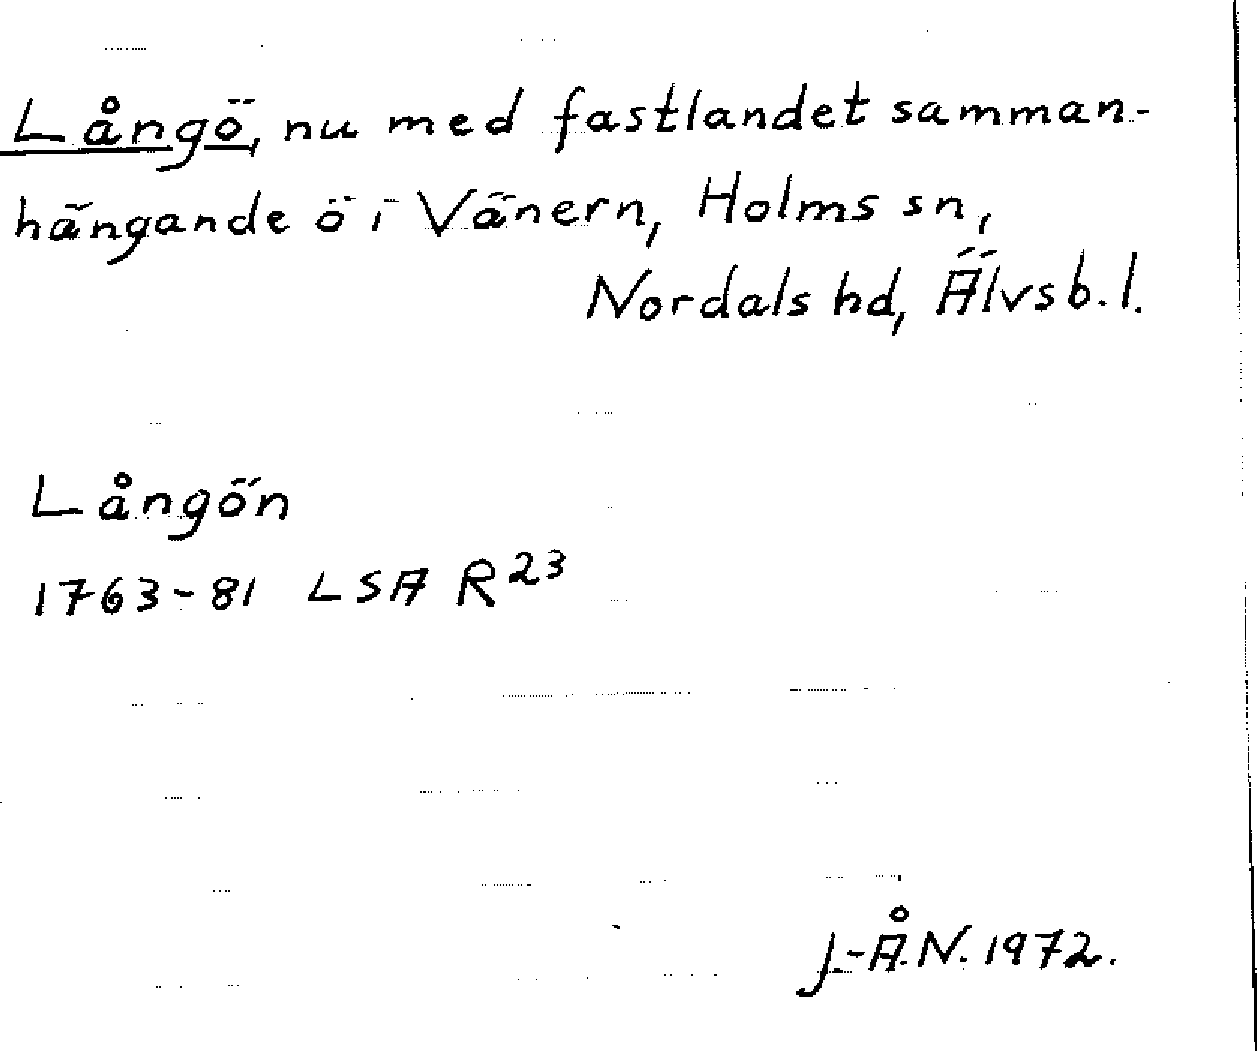 Långö, nu med fastlandet samman-
hängande ö i Vänern, Holms sn,
Nordals hd, Älvsb. l.
Långön
1763-81 LSA R23
J.-Å.N. 1972.